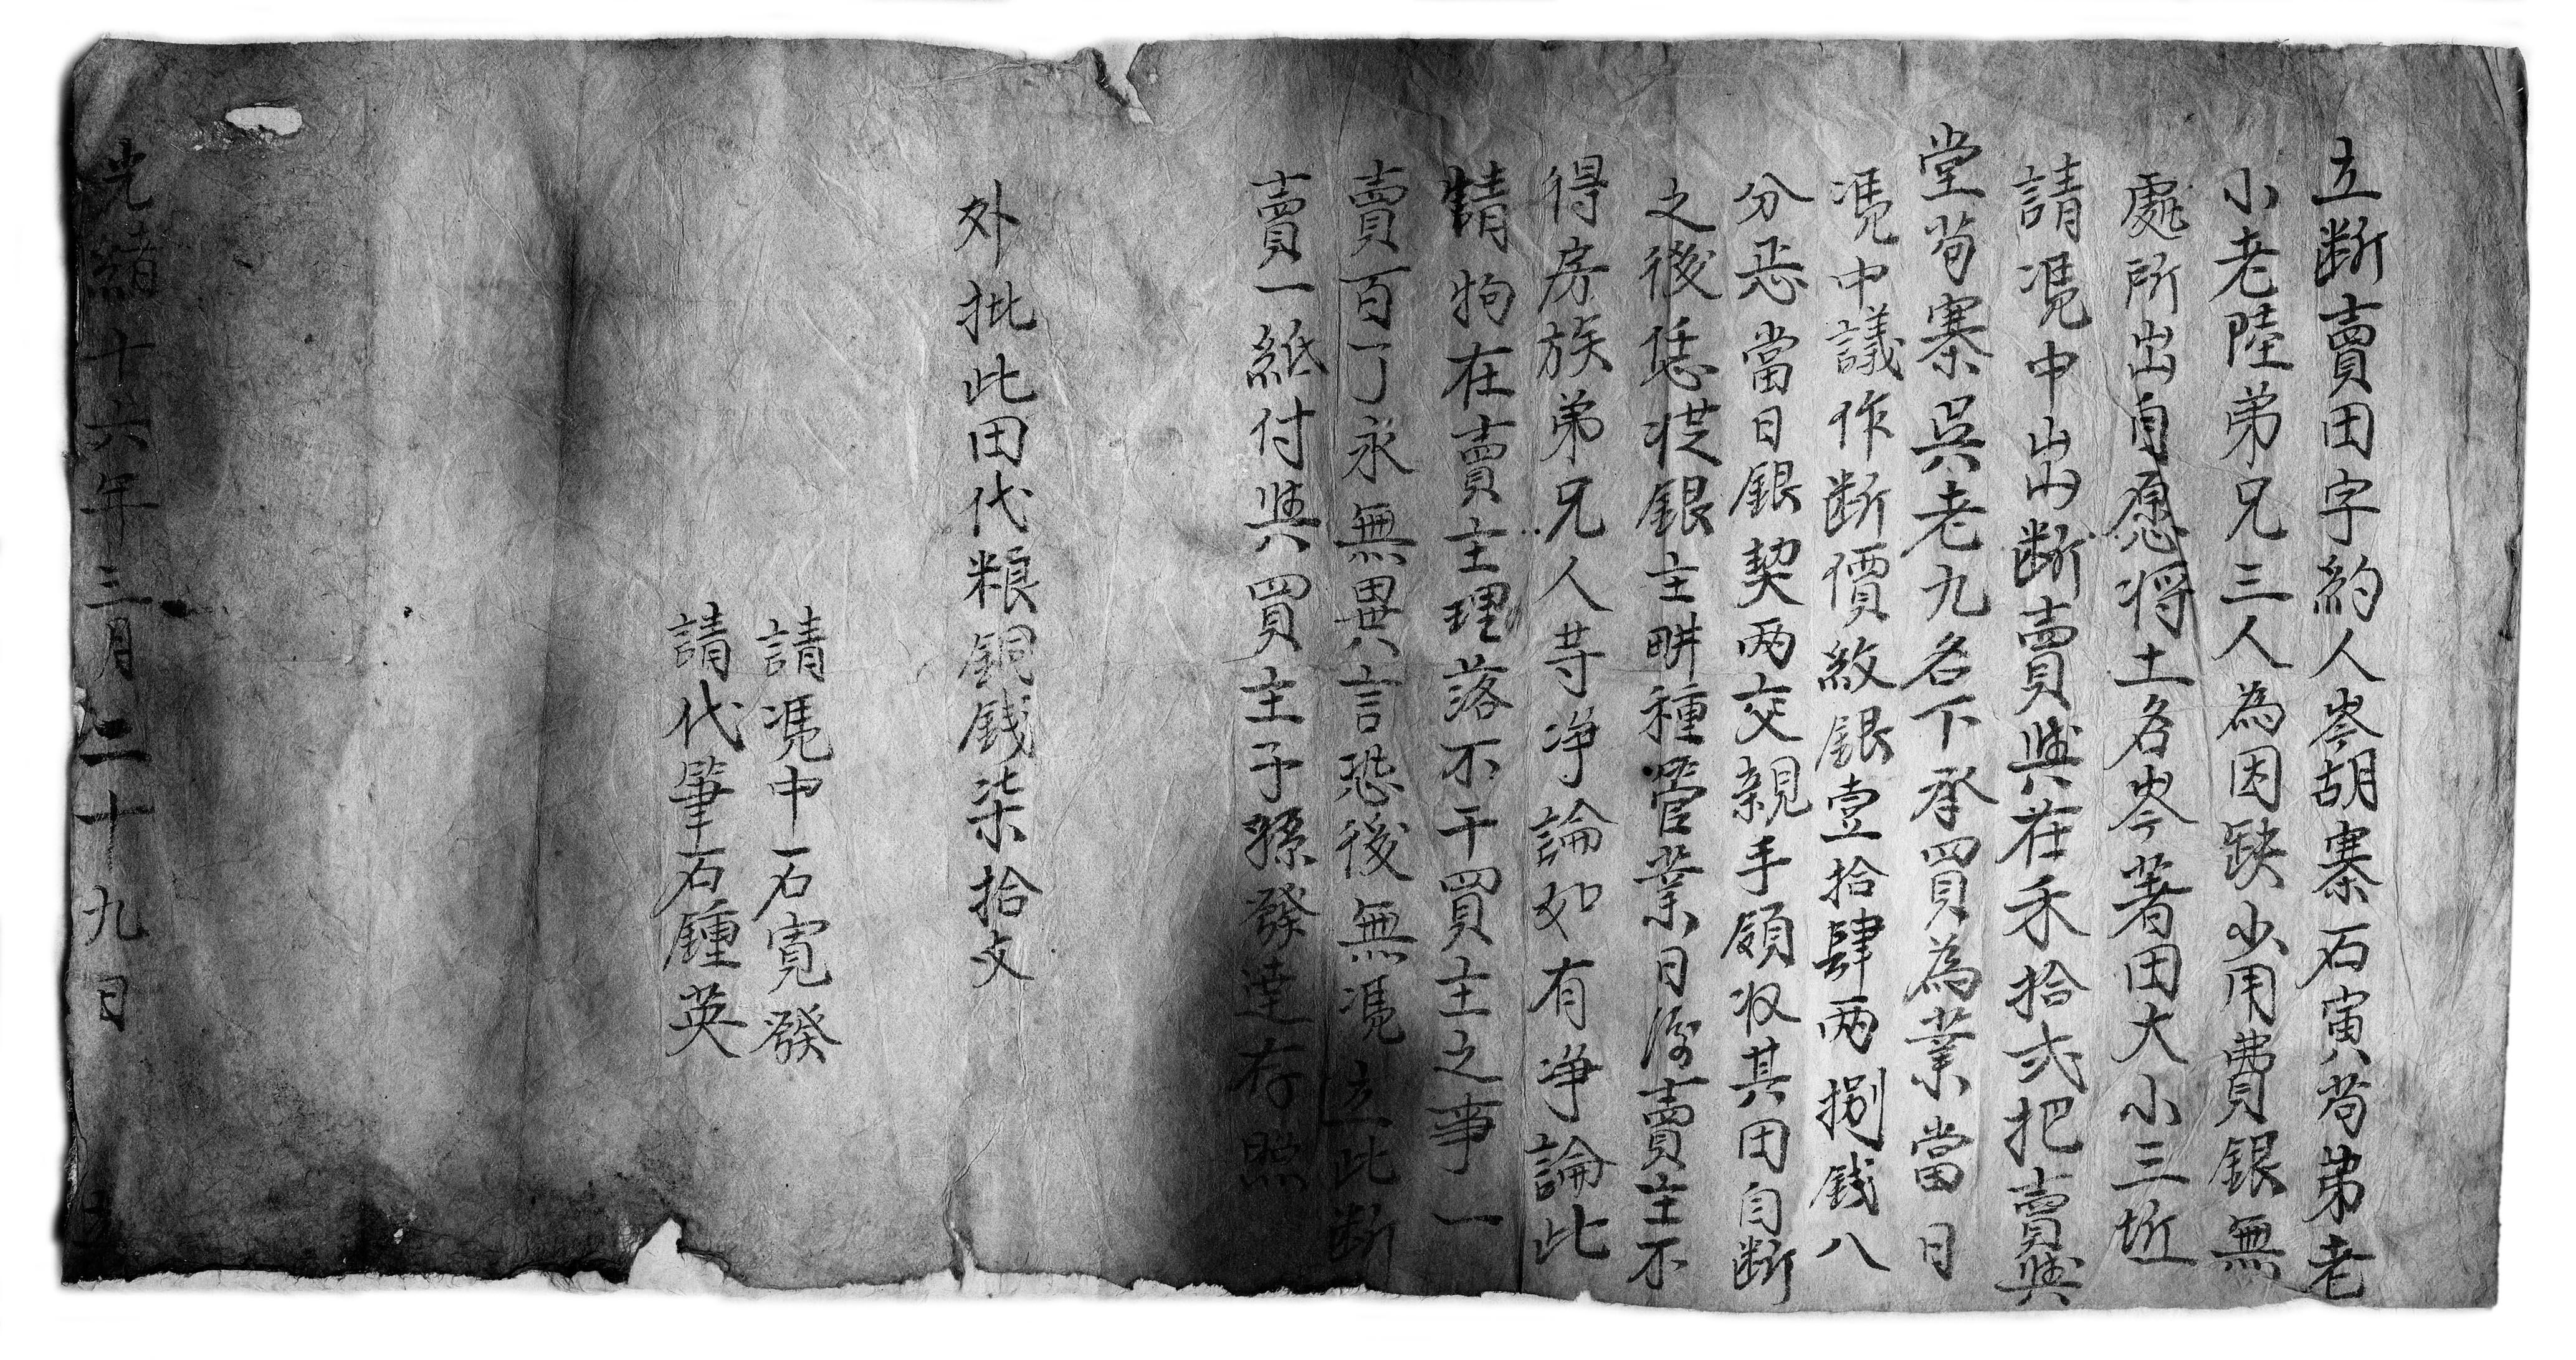 立断賣田字約人岑胡寨石寅苟弟老
小老陸弟兄三人為因缺少用費銀無
處所出自愿将土名岑著田大小三坵
請憑中出断賣與在禾拾弍把賣與
堂苟寨吳老九名下承買為業當日
憑中議作断價紋銀壹拾肆两捌錢八
分正當日銀契两交親手領收其田自断
之後恁從銀主畊種管業日後賣主不
得房族弟兄人等净論如有净論此
情物在賣主理落不干買主之事一
賣百了永無異言恐後無憑立此断
賣一紙付與買主子孫發達存照
外批此田代粮銅錢柒拾文
請憑中石寬發
請代筆石鍾英
光緒十六年三月二十九日